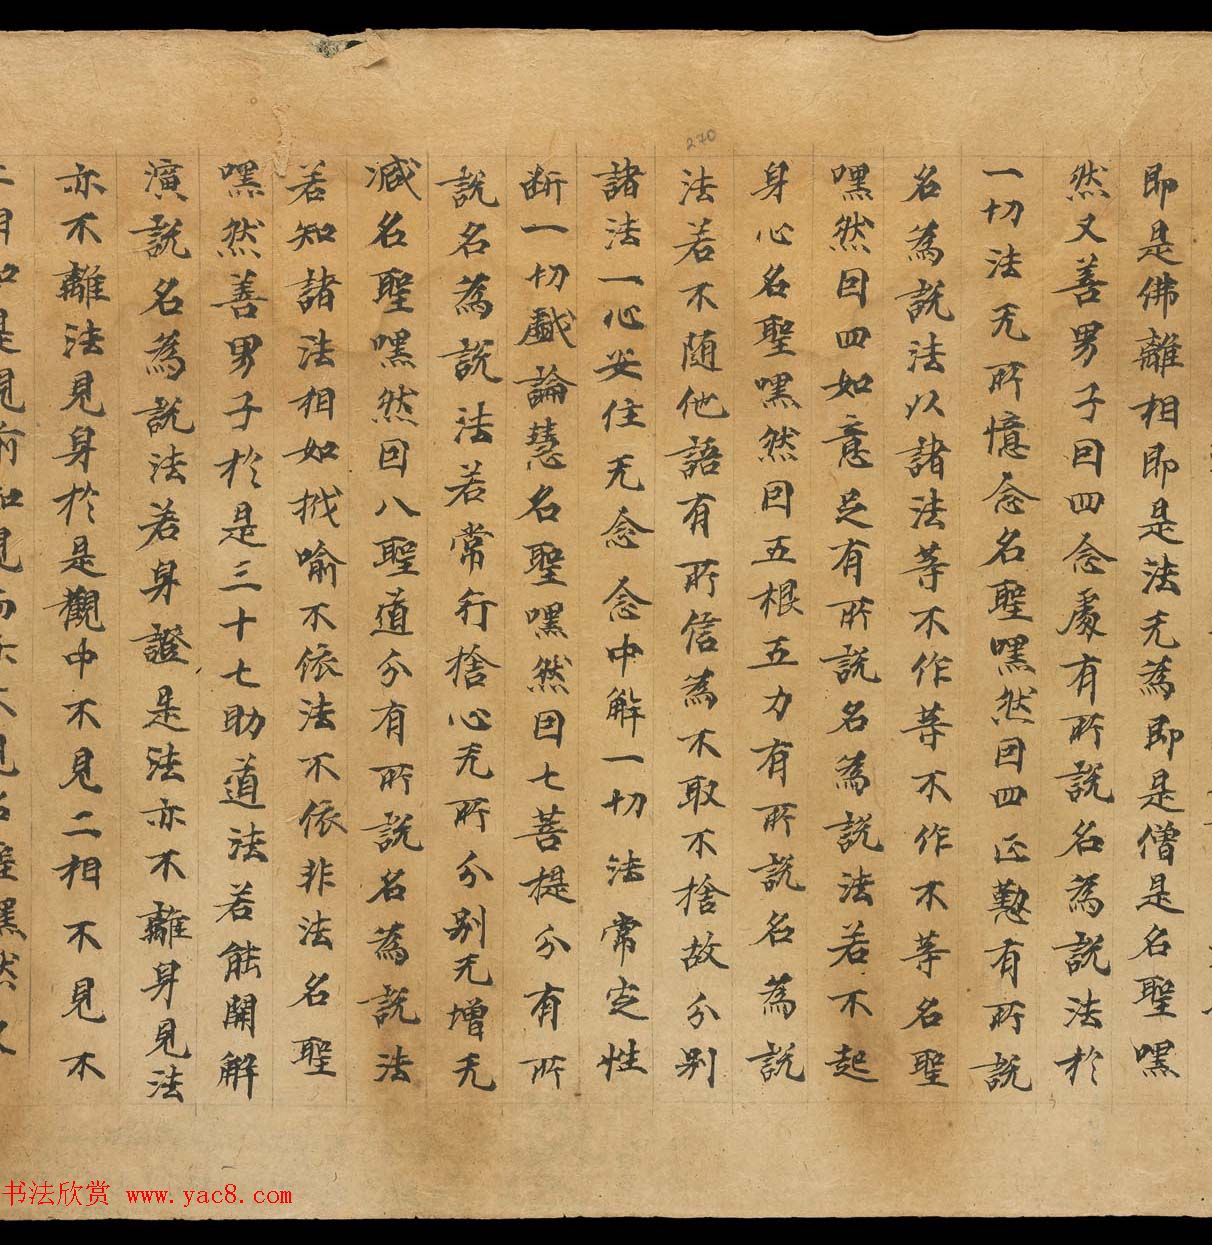 即是佛離相即是法无為即是僧是名聖嘿
然又善男子因四念處有所說名為說法於
一切法无所憶念名聖嘿然因四正懃有所說
名為說法以諸法等不作等不作不等名聖
嘿然因四如意足有所說名為說法若不起
身心名聖嘿然因五根五力有所說名為說
法若不随他語有所信為不取不捨故分别
諸法一心安住无念念中解一切法常定性
断一切戲論慧名聖嘿然因七菩提分有所
說名為說法若常行捨心无所分别无增无
减名聖嘿然因八聖道分有所說名為說法
若知諸法相如栰喻不依法不依非法名聖
嘿然善男子於是三十七助道法若能開解
演說名為說法若身證是法亦不離身見法
亦不離法見身於是觀中不見二相不見不
二相如是現前知見而亦不見名聖嘿然又
270
书法欣赏 www.yac8.com